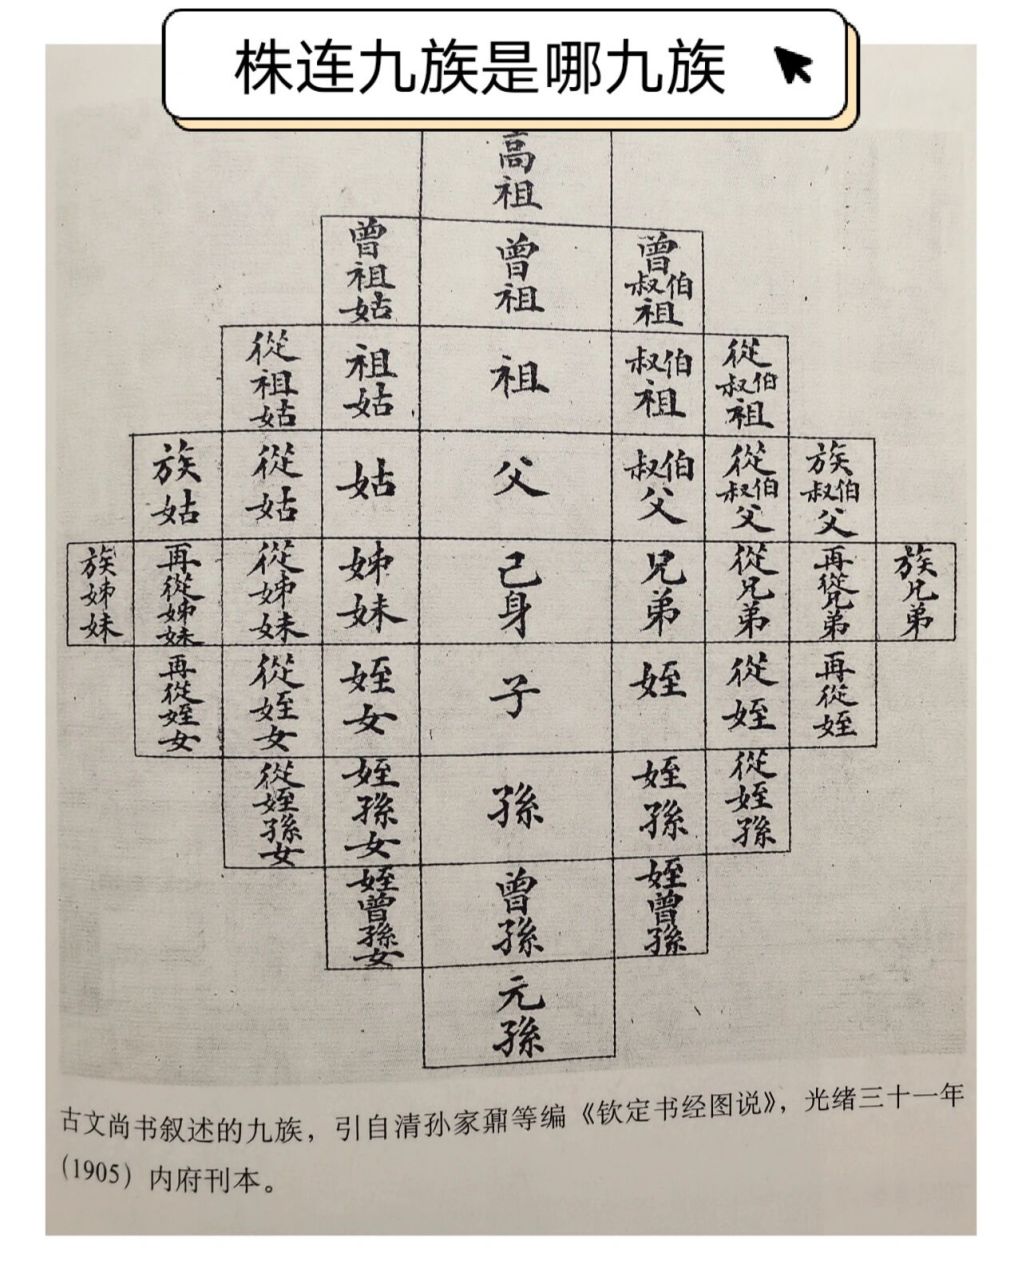 株连九族是哪九族
高祖
曾祖姑
曾祖
曾叔伯祖
從祖姑
祖姑
祖
叔伯祖
從叔伯祖
族姑
從姑
姑
父
叔伯父
從叔伯父
族叔伯父
族姊妹
再從姊妹
從姊妹
姊妹
己身
兄弟
從兄弟
再從兄弟
族兄弟
再從姪女
從姪女
姪女
子
姪
從姪
再從姪
從姪孫女
姪孫女
孫
姪孫
從姪孫
姪曾孫女
曾孫
姪曾孫
元孫
古文尚书叙述的九族，引自清孙家鼐等编《钦定书经图说》，光绪三十一年
（1905）内府刊本。